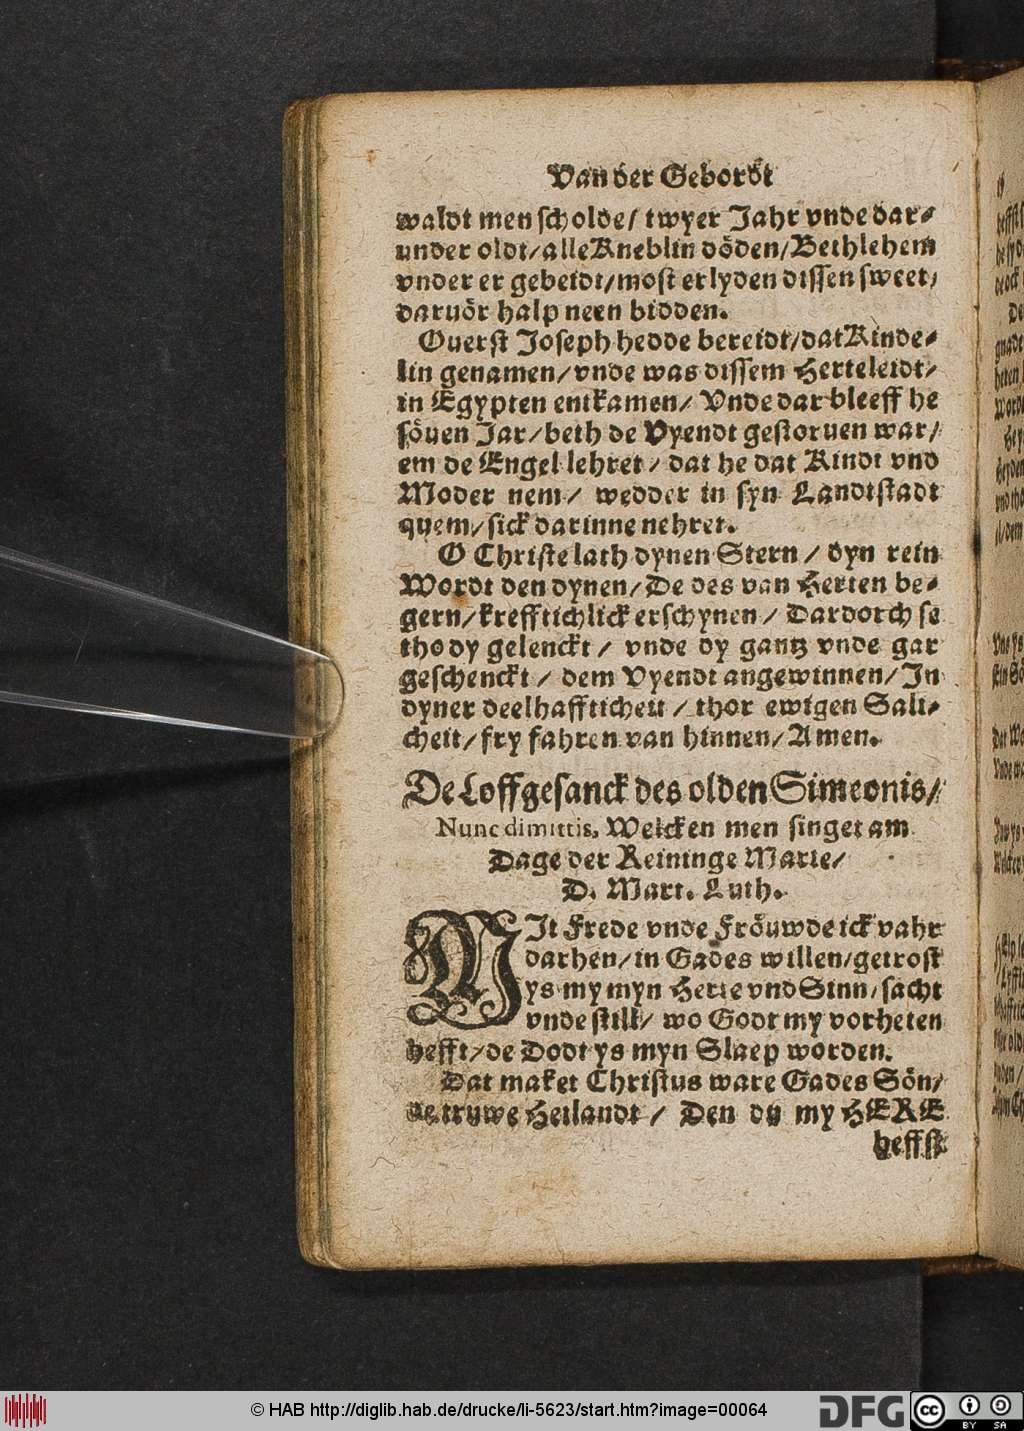 Van der Gebordt
waldt men scholde/ twyer Jahr vnde dar⸗
under oldt/ alle Kneblin döden/ Bethlehem
vnder er gebeidt/ most erlyden dissen sweet/
daruör halp neen bidden.
Ouerst Joseph hedde bereidt/ dat Kinde⸗
lin genamen/ vnde was dissem Herteleidt/
in Egypten entkamen/ Vnde dar bleeff he
söuen Jar/ beth de Vyendt gestoruen war/
em de Engel lehret/ dat he dat Kindt vnd
Moder nem/ wedder in syn Landtstadt
quem/ sick darinne nehret.
O Christe lath dynen Stern/ dyn rein
Wordt den dynen/ De des van Herten be⸗
gern/ krefftichlick erschynen/ Dardorch se
tho dy gelenckt/ vnde dy gantz vnde gar
geschenckt/ dem Vyendt angewinnen/ In
dyner deelhaffticheit/ thor ewigen Sali⸗
cheit/ fry fahren van hinnen/ Amen.
De Loffgesanck des olden Simeonis/
Nunc dimittis, Welcken men singet am
Dage der Reininge Marie/
D. Mart. Luth.
MIt Frede vnde Fröuwde ick vahr
darhen/ in Gades willen/ getrost
ys my myn Herte vnd Sinn/ sacht
vnde still/ wo Godt my vorheten
hefft/ de Dodt ys myn Slaep worden.
Dat maket Christus ware Gades Sön/
de truwe Heilandt/ Den du my HERE
heffst
© HAB http://diglib.hab.de/drucke/li-5623/start.htm?image=00064
DFG
cc
BY SA